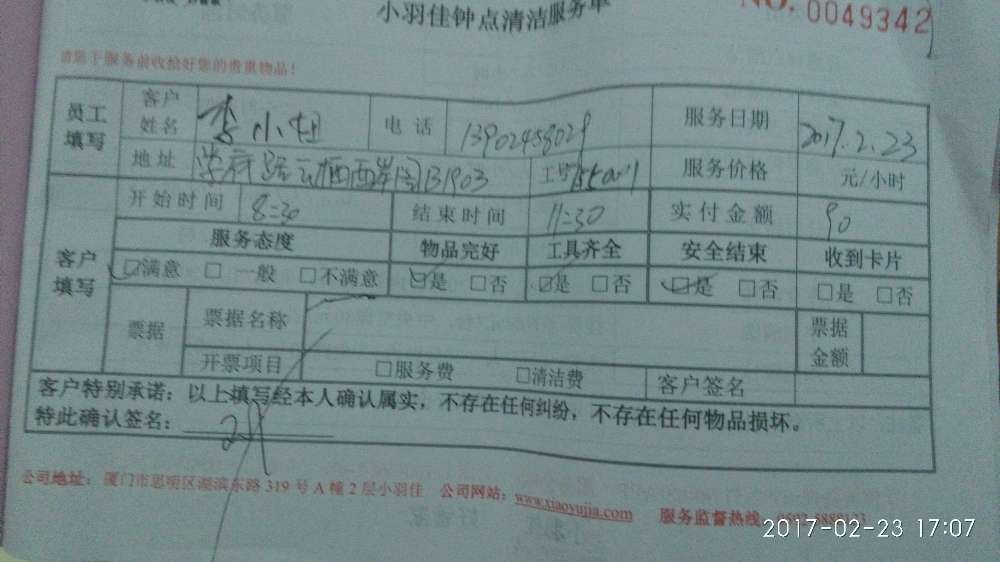 小羽佳钟点清洁服务单
NO. 0049342
请您于服务前收捡好您的贵重物品!
员工填写 客户姓名 李小姐 电话 13902458029 服务日期 2017.2.23
地址 学府路云栖西岸阁131903 工号 服务价格 元/小时
客户填写 开始时间 8:30 结束时间 11:30 实付金额 90
服务态度 物品完好 工具齐全 安全结束 收到卡片
☑满意 □一般 □不满意 ☑是 □否 ☑是 □否 ☑是 □否 □是 □否
票据 票据名称 票据金额
开票项目 □服务费 □清洁费 客户签名
客户特别承诺：以上填写经本人确认属实，不存在任何纠纷，不存在任何物品损坏。
特此确认签名：
公司地址：厦门市思明区湖滨东路319号A幢2层小羽佳 公司网站：www.xiaoyujia.com 服务监督热线：0592-5888123
2017-02-23 17:07